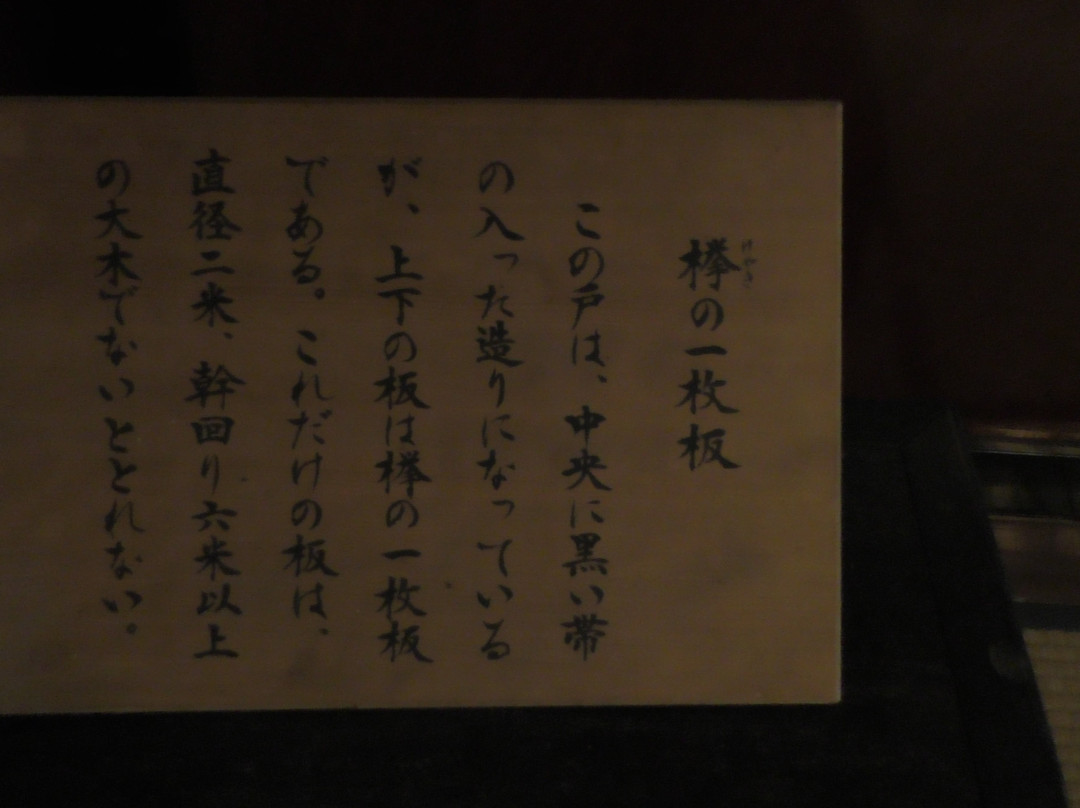 欅の一枚板
けやき
この戸は、中央に黒い帯
の入った造りになっている
が、上下の板は欅の一枚板
である。これだけの板は、
直径二米、幹回り六米以上
の大木でないととれない。